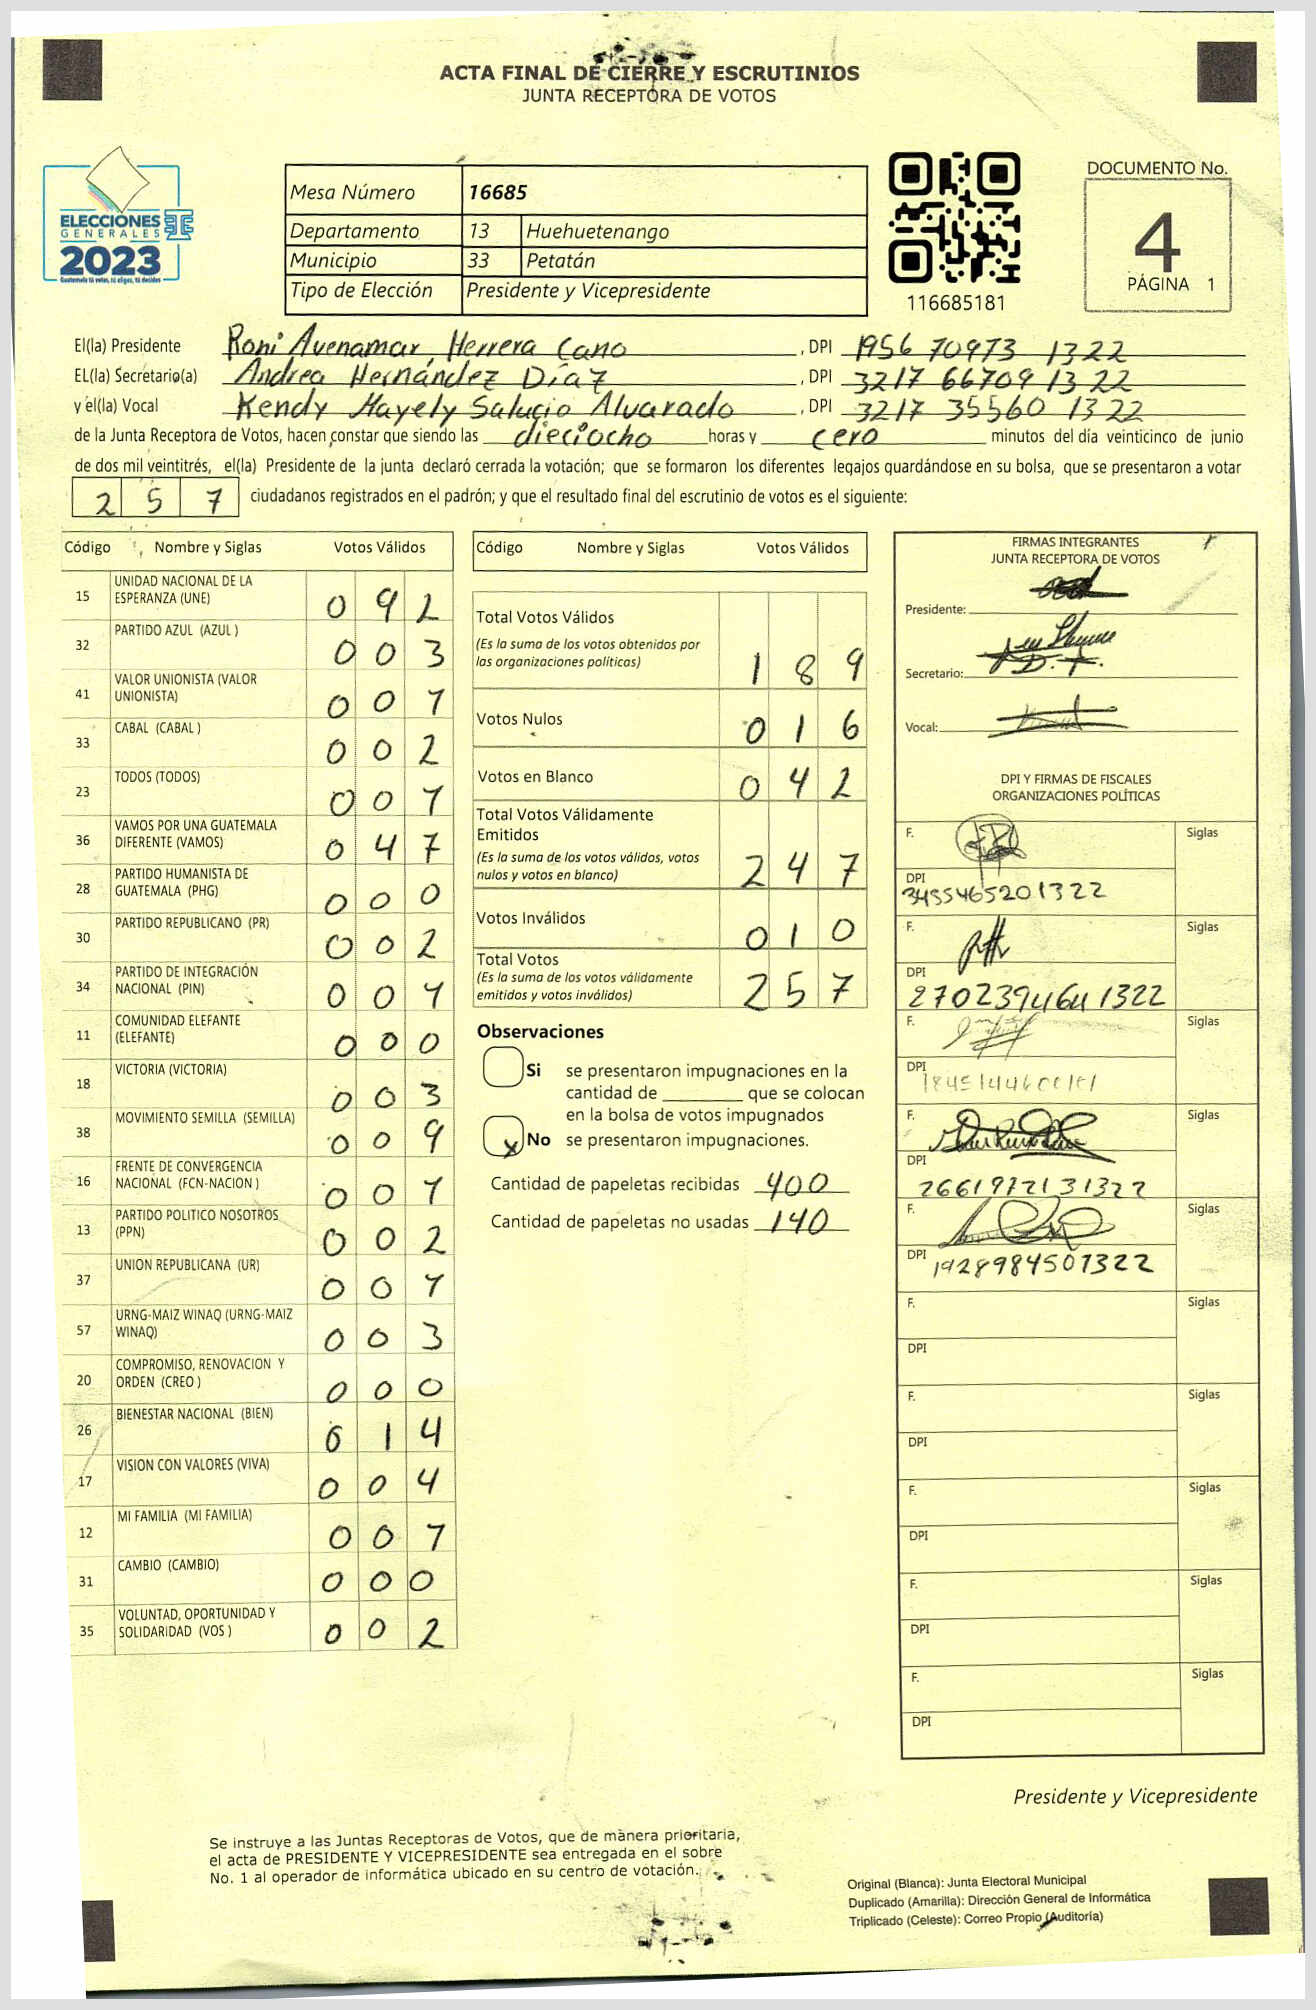 ACTA FINAL DE CIERRE Y ESCRUTINIOS
JUNTA RECEPTORA DE VOTOS
ELECCIONES
GENERALES
2023
Guatemala tú votas, tú eliges, tú decides
Mesa Número 16685
Departamento 13 Huehuetenango
Municipio 33 Petatán
Tipo de Elección Presidente y Vicepresidente
116685181
DOCUMENTO No.
4
PÁGINA 1
El(la) Presidente Roni Avenamar Herrera Cano , DPI 1956 70973 1322
EL(la) Secretario(a) Andrea Hernández Díaz , DPI 3217 66709 1322
y el(la) Vocal Kendy Mayely Salucio Alvarado , DPI 3217 35560 1322
de la Junta Receptora de Votos, hacen constar que siendo las dieciocho horas y cero minutos del día veinticinco de junio
de dos mil veintitrés, el(la) Presidente de la junta declaró cerrada la votación; que se formaron los diferentes legajos guardándose en su bolsa, que se presentaron a votar
257 ciudadanos registrados en el padrón; y que el resultado final del escrutinio de votos es el siguiente:
Código Nombre y Siglas Votos Válidos
15 UNIDAD NACIONAL DE LA ESPERANZA (UNE) 092
32 PARTIDO AZUL (AZUL ) 003
41 VALOR UNIONISTA (VALOR UNIONISTA) 001
33 CABAL (CABAL ) 002
23 TODOS (TODOS) 001
36 VAMOS POR UNA GUATEMALA DIFERENTE (VAMOS) 047
28 PARTIDO HUMANISTA DE GUATEMALA (PHG) 000
30 PARTIDO REPUBLICANO (PR) 002
34 PARTIDO DE INTEGRACIÓN NACIONAL (PIN) 001
11 COMUNIDAD ELEFANTE (ELEFANTE) 000
18 VICTORIA (VICTORIA) 003
38 MOVIMIENTO SEMILLA (SEMILLA) 009
16 FRENTE DE CONVERGENCIA NACIONAL (FCN-NACION ) 001
13 PARTIDO POLITICO NOSOTROS (PPN) 002
37 UNION REPUBLICANA (UR) 001
57 URNG-MAIZ WINAQ (URNG-MAIZ WINAQ) 003
20 COMPROMISO, RENOVACION Y ORDEN (CREO ) 000
26 BIENESTAR NACIONAL (BIEN) 014
17 VISION CON VALORES (VIVA) 004
12 MI FAMILIA (MI FAMILIA) 001
31 CAMBIO (CAMBIO) 000
35 VOLUNTAD, OPORTUNIDAD Y SOLIDARIDAD (VOS ) 002
Código Nombre y Siglas Votos Válidos
Total Votos Válidos
(Es la suma de los votos obtenidos por
las organizaciones políticas) 189
Votos Nulos 016
Votos en Blanco 042
Total Votos Válidamente
Emitidos
(Es la suma de los votos válidos, votos
nulos y votos en blanco) 247
Votos Inválidos 010
Total Votos
(Es la suma de los votos válidamente
emitidos y votos inválidos) 257
Observaciones
Si se presentaron impugnaciones en la
cantidad de ________ que se colocan
en la bolsa de votos impugnados
x No se presentaron impugnaciones.
Cantidad de papeletas recibidas 400
Cantidad de papeletas no usadas 140
FIRMAS INTEGRANTES
JUNTA RECEPTORA DE VOTOS
Presidente:
Secretario:
Vocal:
DPI Y FIRMAS DE FISCALES
ORGANIZACIONES POLÍTICAS
F. Siglas
DPI
3455465201322
F. Siglas
DPI
2702394641322
F. Siglas
DPI
F. Siglas
DPI
2661972131322
F. Siglas
DPI 1928984501322
F. Siglas
DPI
F. Siglas
DPI
F. Siglas
DPI
F. Siglas
DPI
F. Siglas
DPI
Presidente y Vicepresidente
Se instruye a las Juntas Receptoras de Votos, que de manera prioritaria,
el acta de PRESIDENTE Y VICEPRESIDENTE sea entregada en el sobre
No. 1 al operador de informática ubicado en su centro de votación.
Original (Blanca): Junta Electoral Municipal
Duplicado (Amarilla): Dirección General de Informática
Triplicado (Celeste): Correo Propio (Auditoría)